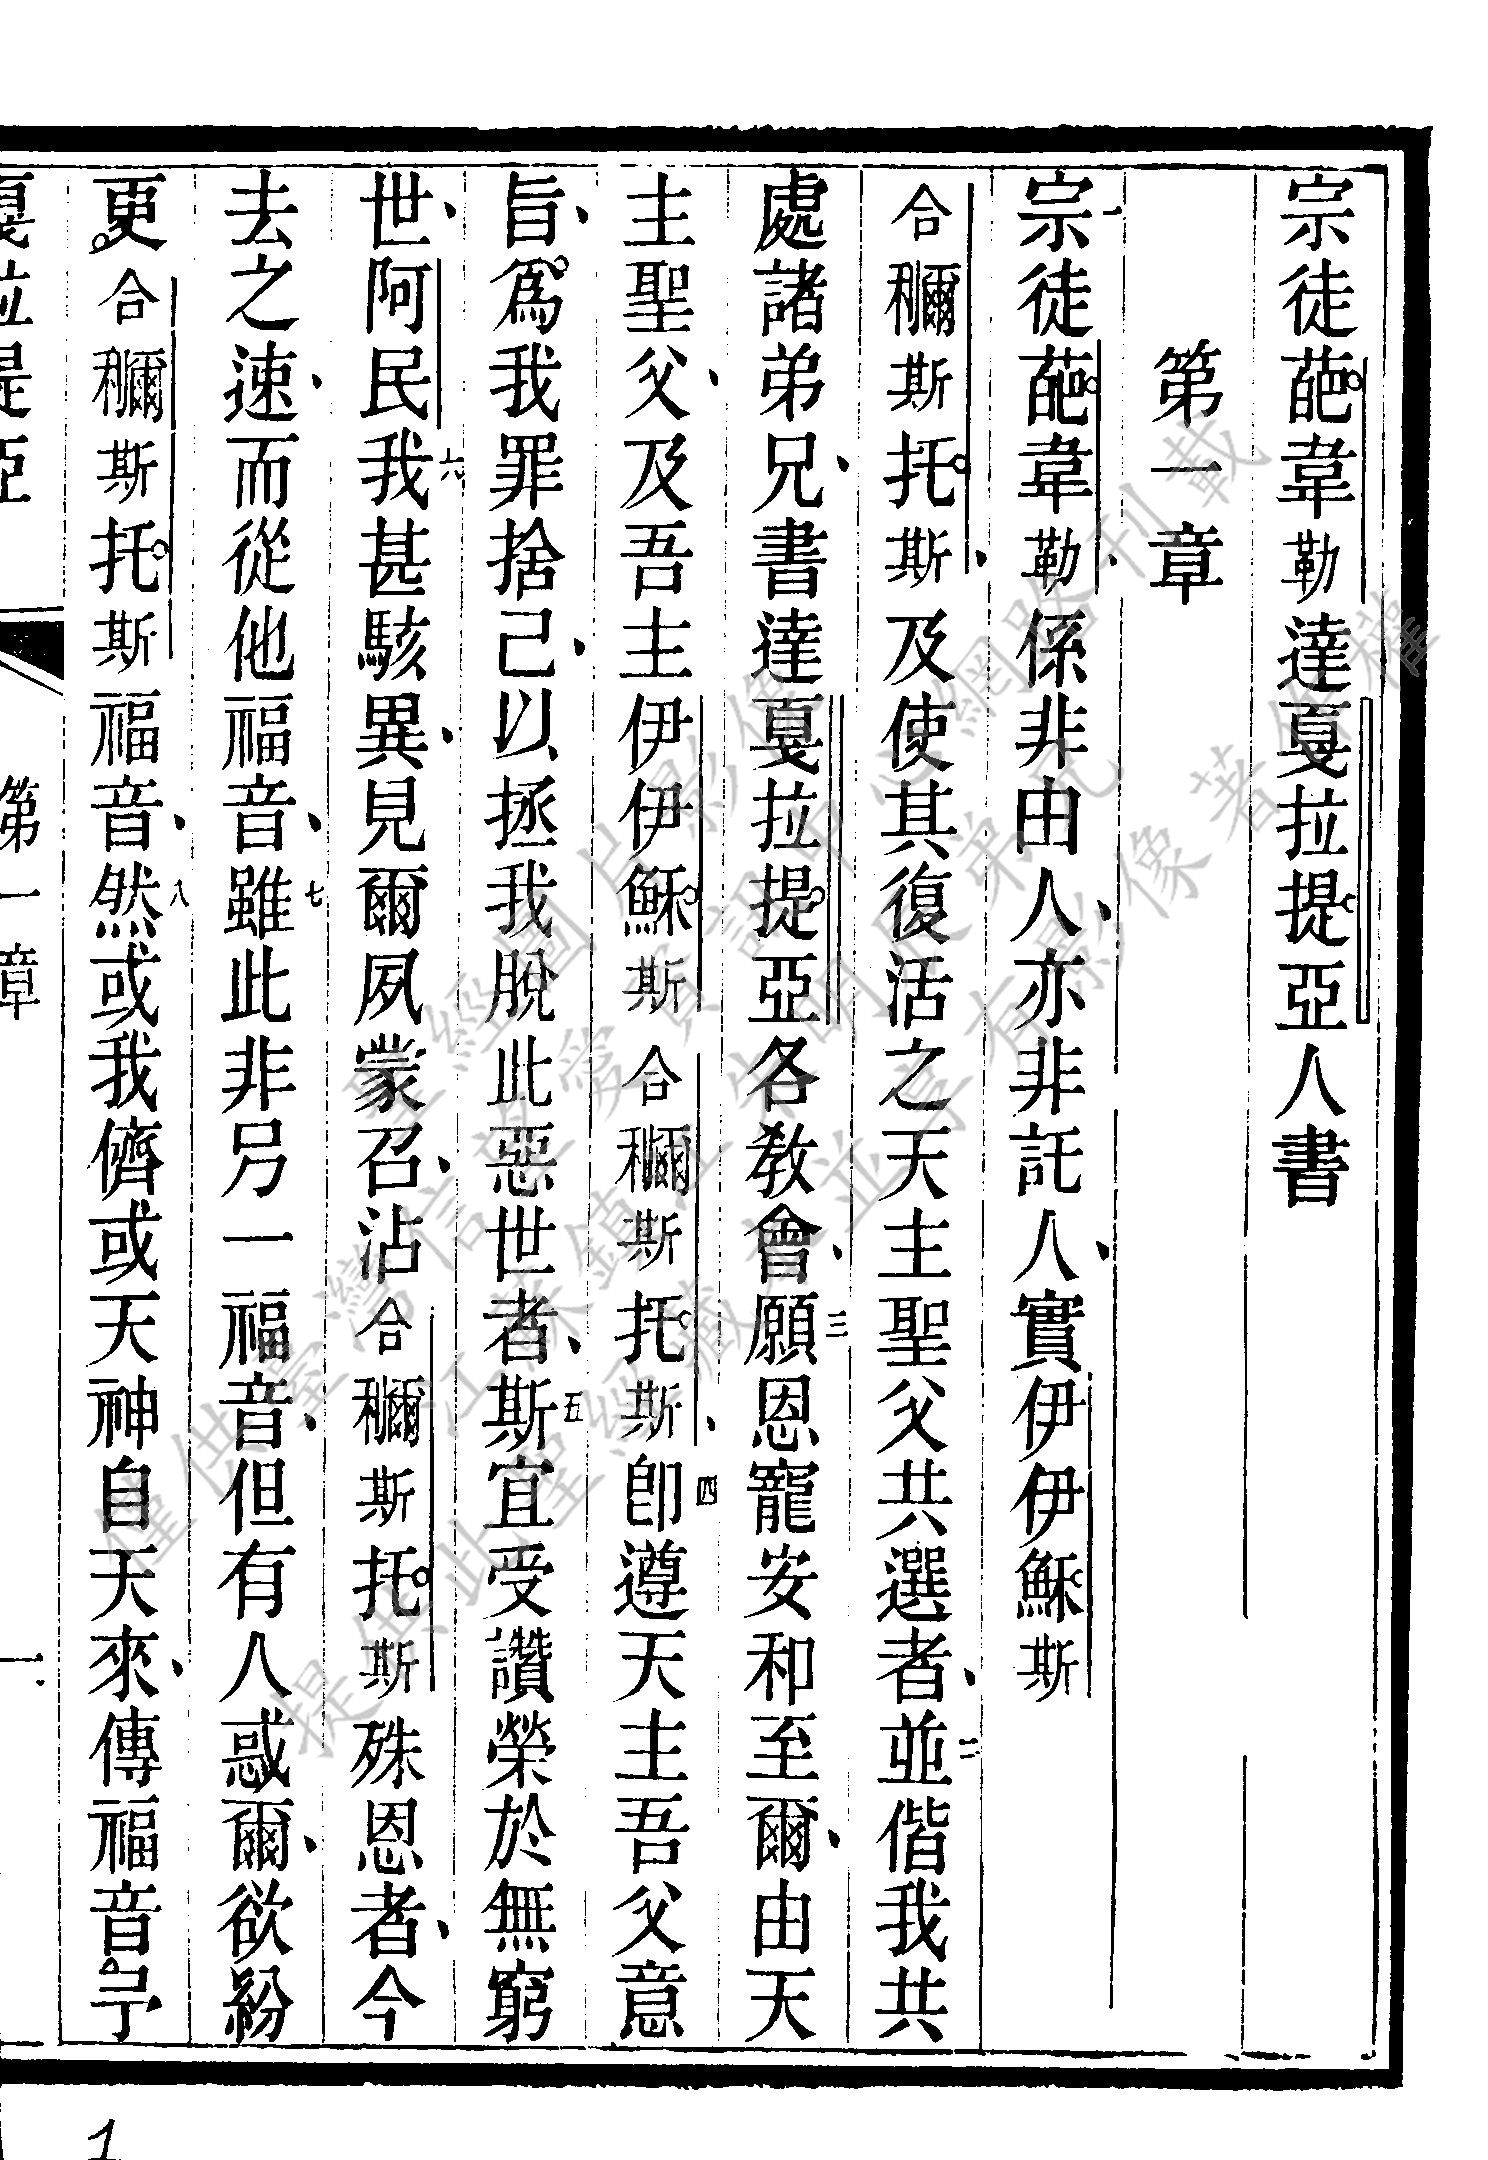 宗徒葩韋勒達戛拉提亞人書
第一章
一宗徒葩韋勒、係非由人、亦非託人、實伊伊穌斯
合穪斯托斯、及使其復活之天主聖父共選者、二並偕我共
處諸弟兄、書達戛拉提亞各教會、三願恩寵安和至爾、由天
主聖父、及吾主伊伊穌斯合穪斯托斯、四卽遵天主吾父意
旨、爲我罪捨己、以拯我脫此惡世者、五斯宜受讚榮於無窮
世、阿民六我甚駭異、見爾夙蒙召、沾合穪斯托斯殊恩者、今
去之速、而從他福音、七雖此非另一福音、但有人惑爾、欲紛
更合穪斯托斯福音、八然或我儕或天神自天來、傳福音予
戛拉提亞 第一章 一
1
僅供臺灣信望愛資訊中心網路刊載